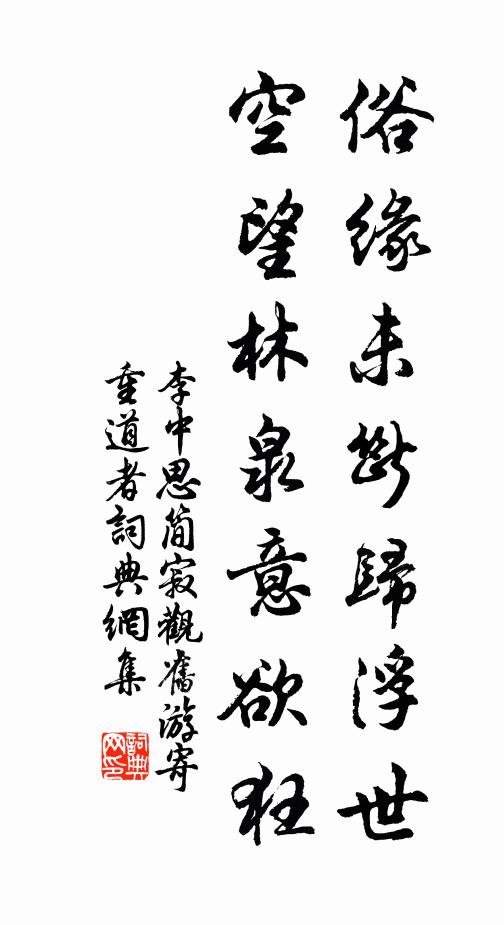 俗緣未斷歸浮世
空望林泉意欲狂
李中思簡寂觀舊游寄
重道者詞典網集
詞典
网印